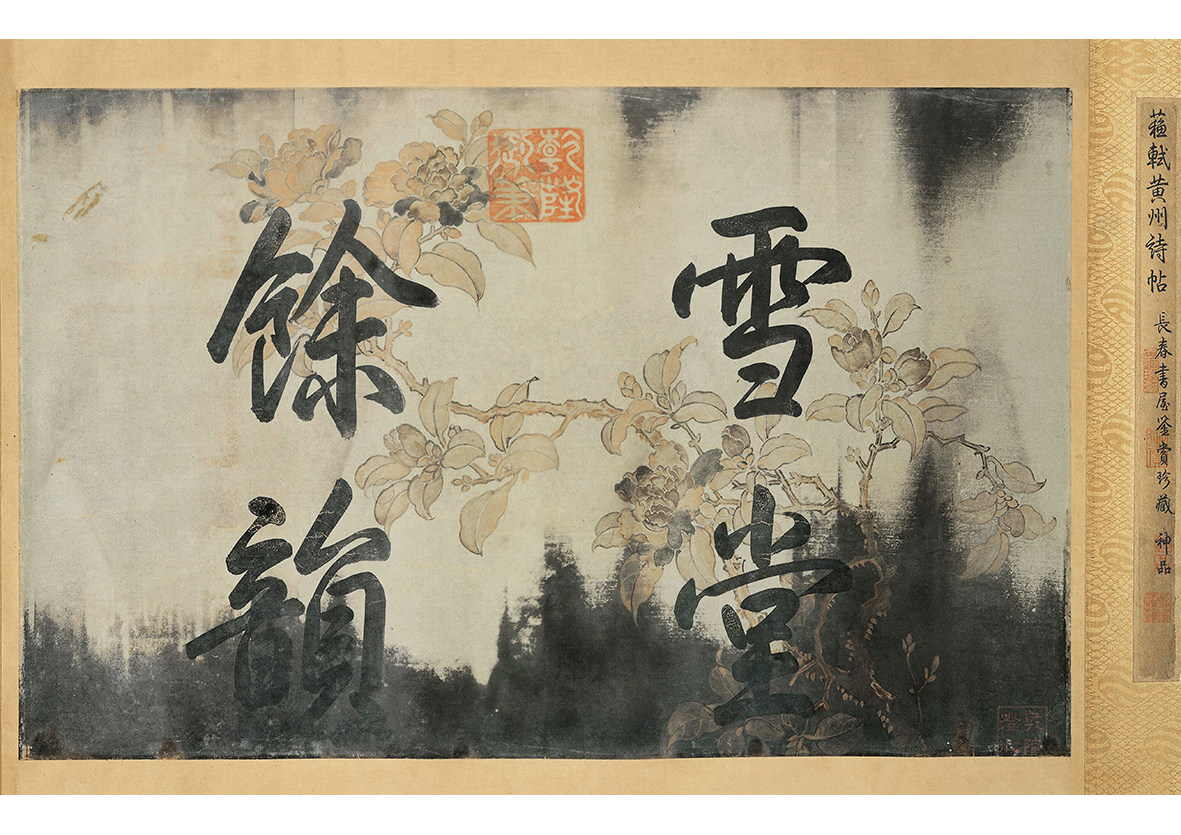 蘓軾黃州詩帖 長春書屋鉴賞珍藏 神品
雪堂
餘韻
乾隆御筆